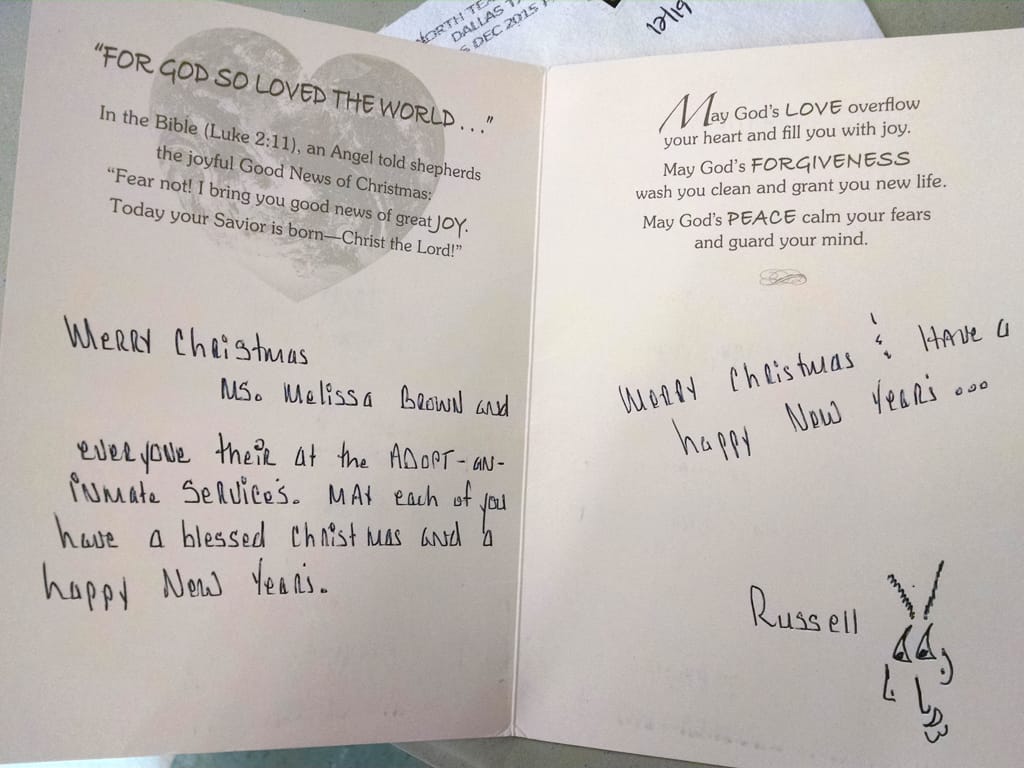 NORTH TE
DALLAS T
DEC 2015
12/19
"FOR GOD SO LOVED THE WORLD . . ."
In the Bible (Luke 2:11), an Angel told shepherds
the joyful Good News of Christmas:
"Fear not! I bring you good news of great JOY.
Today your Savior is born—Christ the Lord!"
Merry Christmas
Ms. Melissa Brown and
everyone their at the ADOPT-AN-
INMate Services. MAY each of you
have a blessed Christmas and a
happy New Years.
May God's LOVE overflow
your heart and fill you with joy.
May God's FORGIVENESS
wash you clean and grant you new life.
May God's PEACE calm your fears
and guard your mind.
Merry Christmas & HAVE a
happy New Years...
Russell